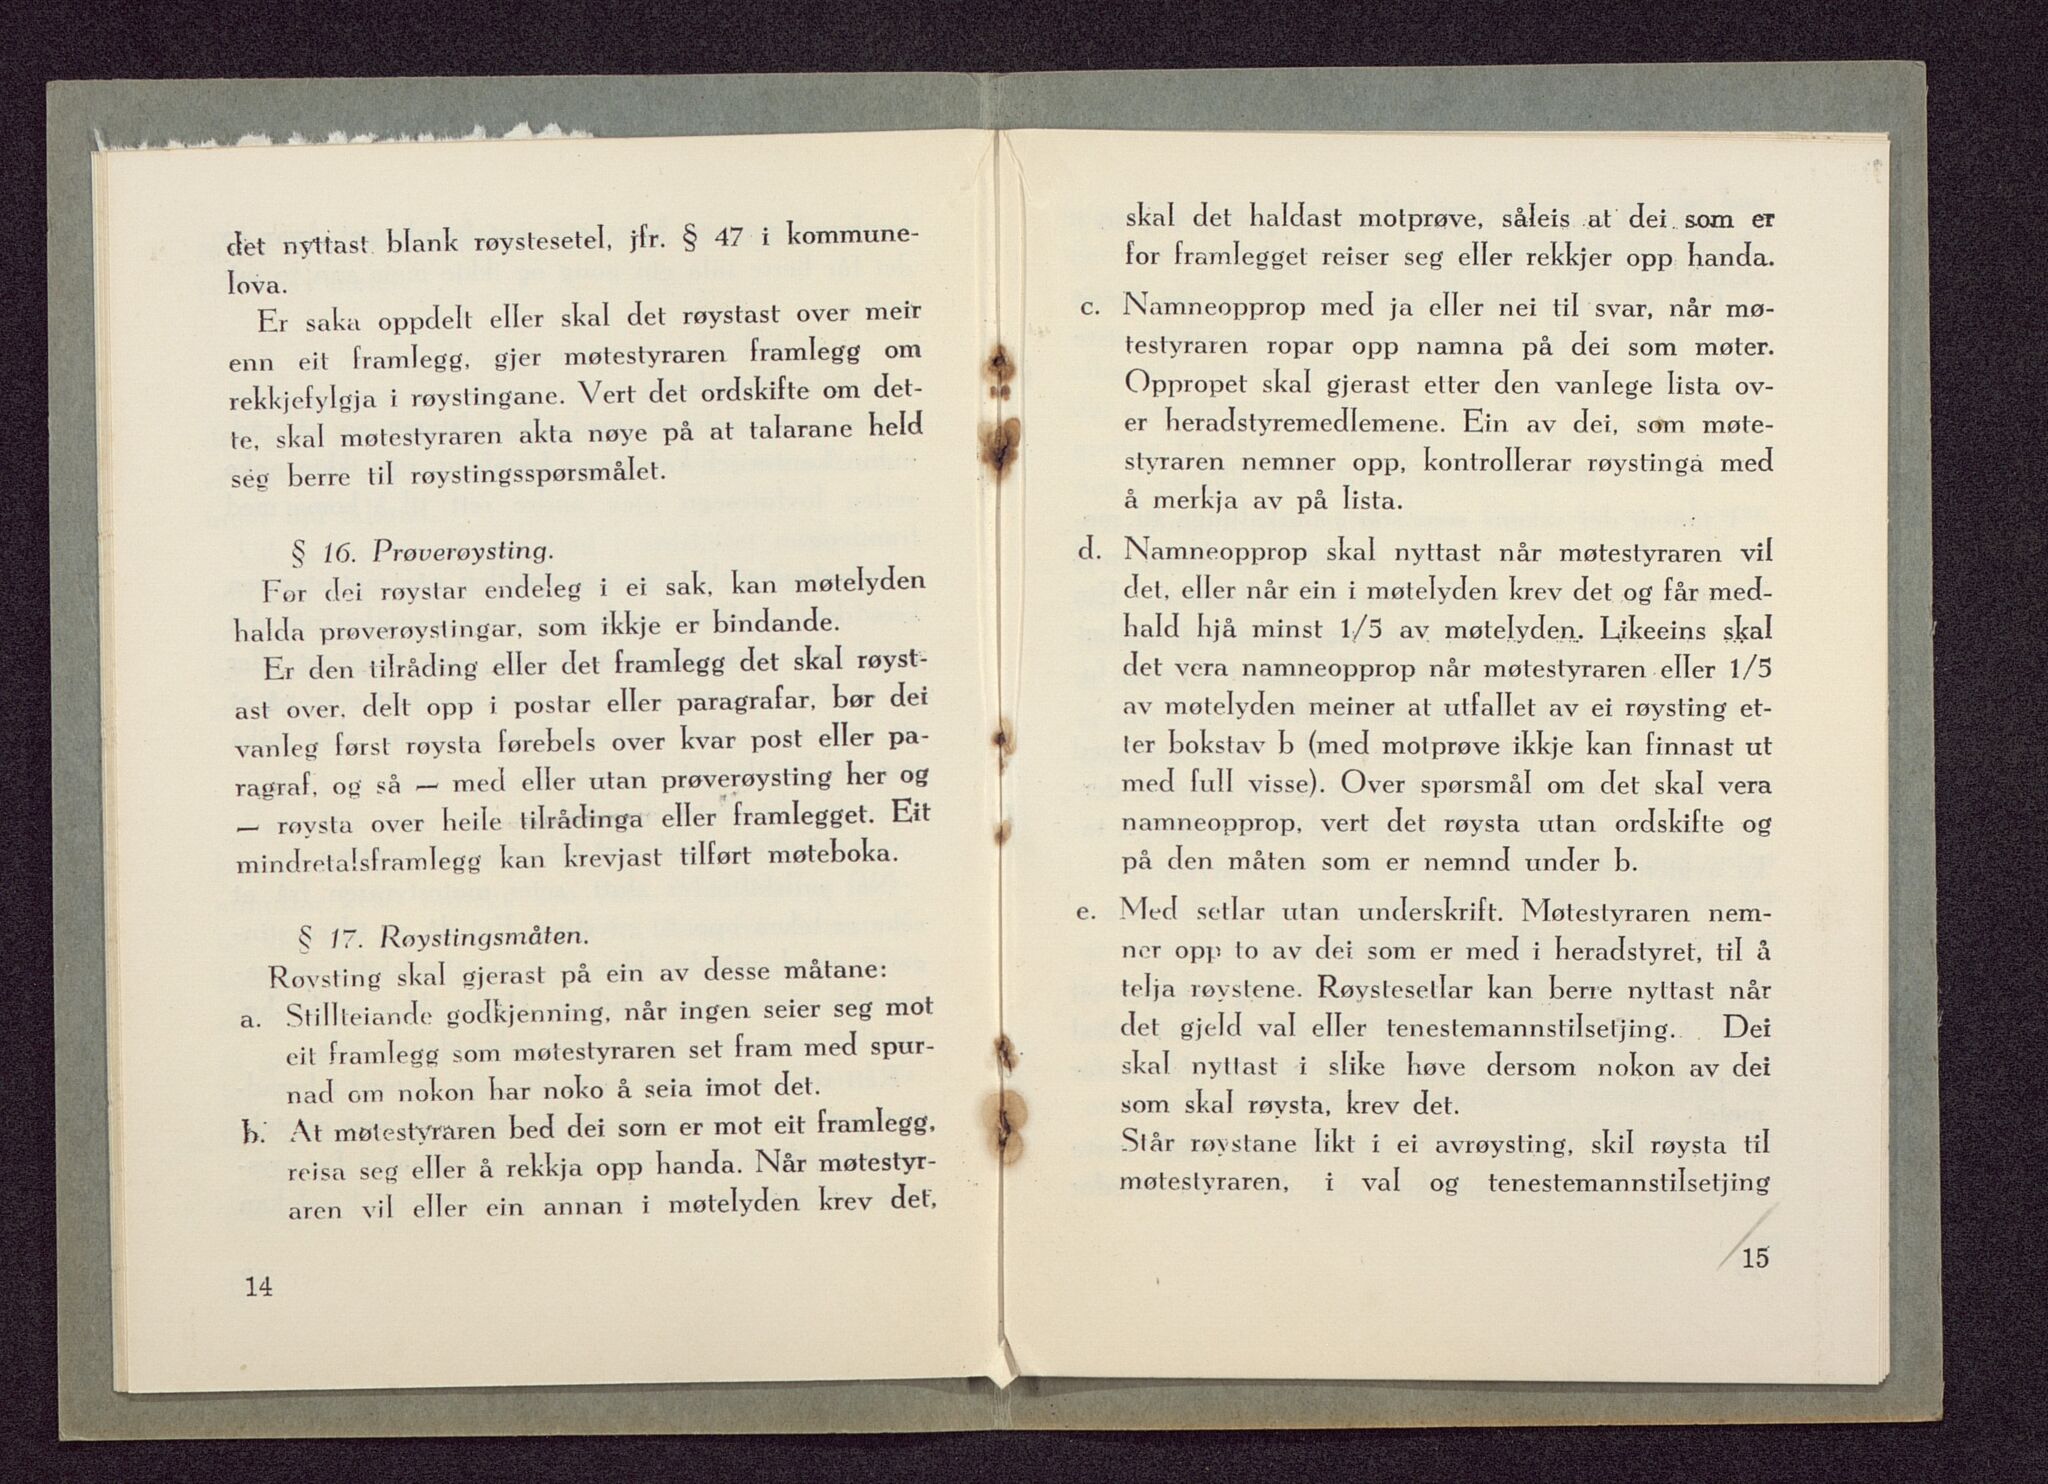 det nyttast blank røystesetel, jfr. § 47 i kommune-
lova.
Er saka oppdelt eller skal det røystast over meir
enn eit framlegg, gjer møtestyraren framlegg om
rekkjefylgja i røystingane. Vert det ordskifte om det-
te, skal møtestyraren akta nøye på at talarane held
seg berre til røystingsspørsmålet.
§ 16. Prøverøysting.
Før dei røystar endeleg i ei sak, kan møtelyden
halda prøverøystingar, som ikkje er bindande.
Er den tilråding eller det framlegg det skal røyst-
ast over, delt opp i postar eller paragrafar, bør dei
vanleg først røysta førebels over kvar post eller pa-
ragraf, og så — med eller utan prøverøysting her og
— røysta over heile tilrådinga eller framlegget. Eit
mindretalsframlegg kan krevjast tilført møteboka.
§ 17. Røystingsmåten.
Røysting skal gjerast på ein av desse måtane:
a. Stillteiande godkjenning, når ingen seier seg mot
eit framlegg som møtestyraren set fram med spur-
nad om nokon har noko å seia imot det.
b. At møtestyraren bed dei som er mot eit framlegg,
reisa seg eller å rekkja opp handa. Når møtestyr-
aren vil eller ein annan i møtelyden krev det,
14
skal det haldast motprøve, såleis at dei som er
for framlegget reiser seg eller rekkjer opp handa.
c. Namneopprop med ja eller nei til svar, når mø-
testyraren ropar opp namna på dei som møter.
Oppropet skal gjerast etter den vanlege lista ov-
er heradstyremedlemene. Ein av dei, som møte-
styraren nemner opp, kontrollerar røystinga med
å merkja av på lista.
d. Namneopprop skal nyttast når møtestyraren vil
det, eller når ein i møtelyden krev det og får med-
hald hjå minst 1/5 av møtelyden. Likeeins skal
det vera namneopprop når møtestyraren eller 1/5
av møtelyden meiner at utfallet av ei røysting et-
ter bokstav b (med motprøve ikkje kan finnast ut
med full visse). Over spørsmål om det skal vera
namneopprop, vert det røysta utan ordskifte og
på den måten som er nemnd under b.
e. Med setlar utan underskrift. Møtestyraren nem-
ner opp to av dei som er med i heradstyret, til å
telja røystene. Røystesetlar kan berre nyttast når
det gjeld val eller tenestemannstilsetjing. Dei
skal nyttast i slike høve dersom nokon av dei
som skal røysta, krev det.
Står røystane likt i ei avrøysting, skil røysta til
møtestyraren, i val og tenestemannstilsetjing
15